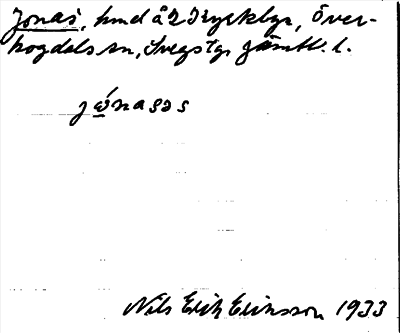 Jonas, hmd å 2 Tryckbyn, Över-
hogdals sn, Svegs tg. Jämtl. l.
jώnasəs
Nils Erik Eriksson 1933